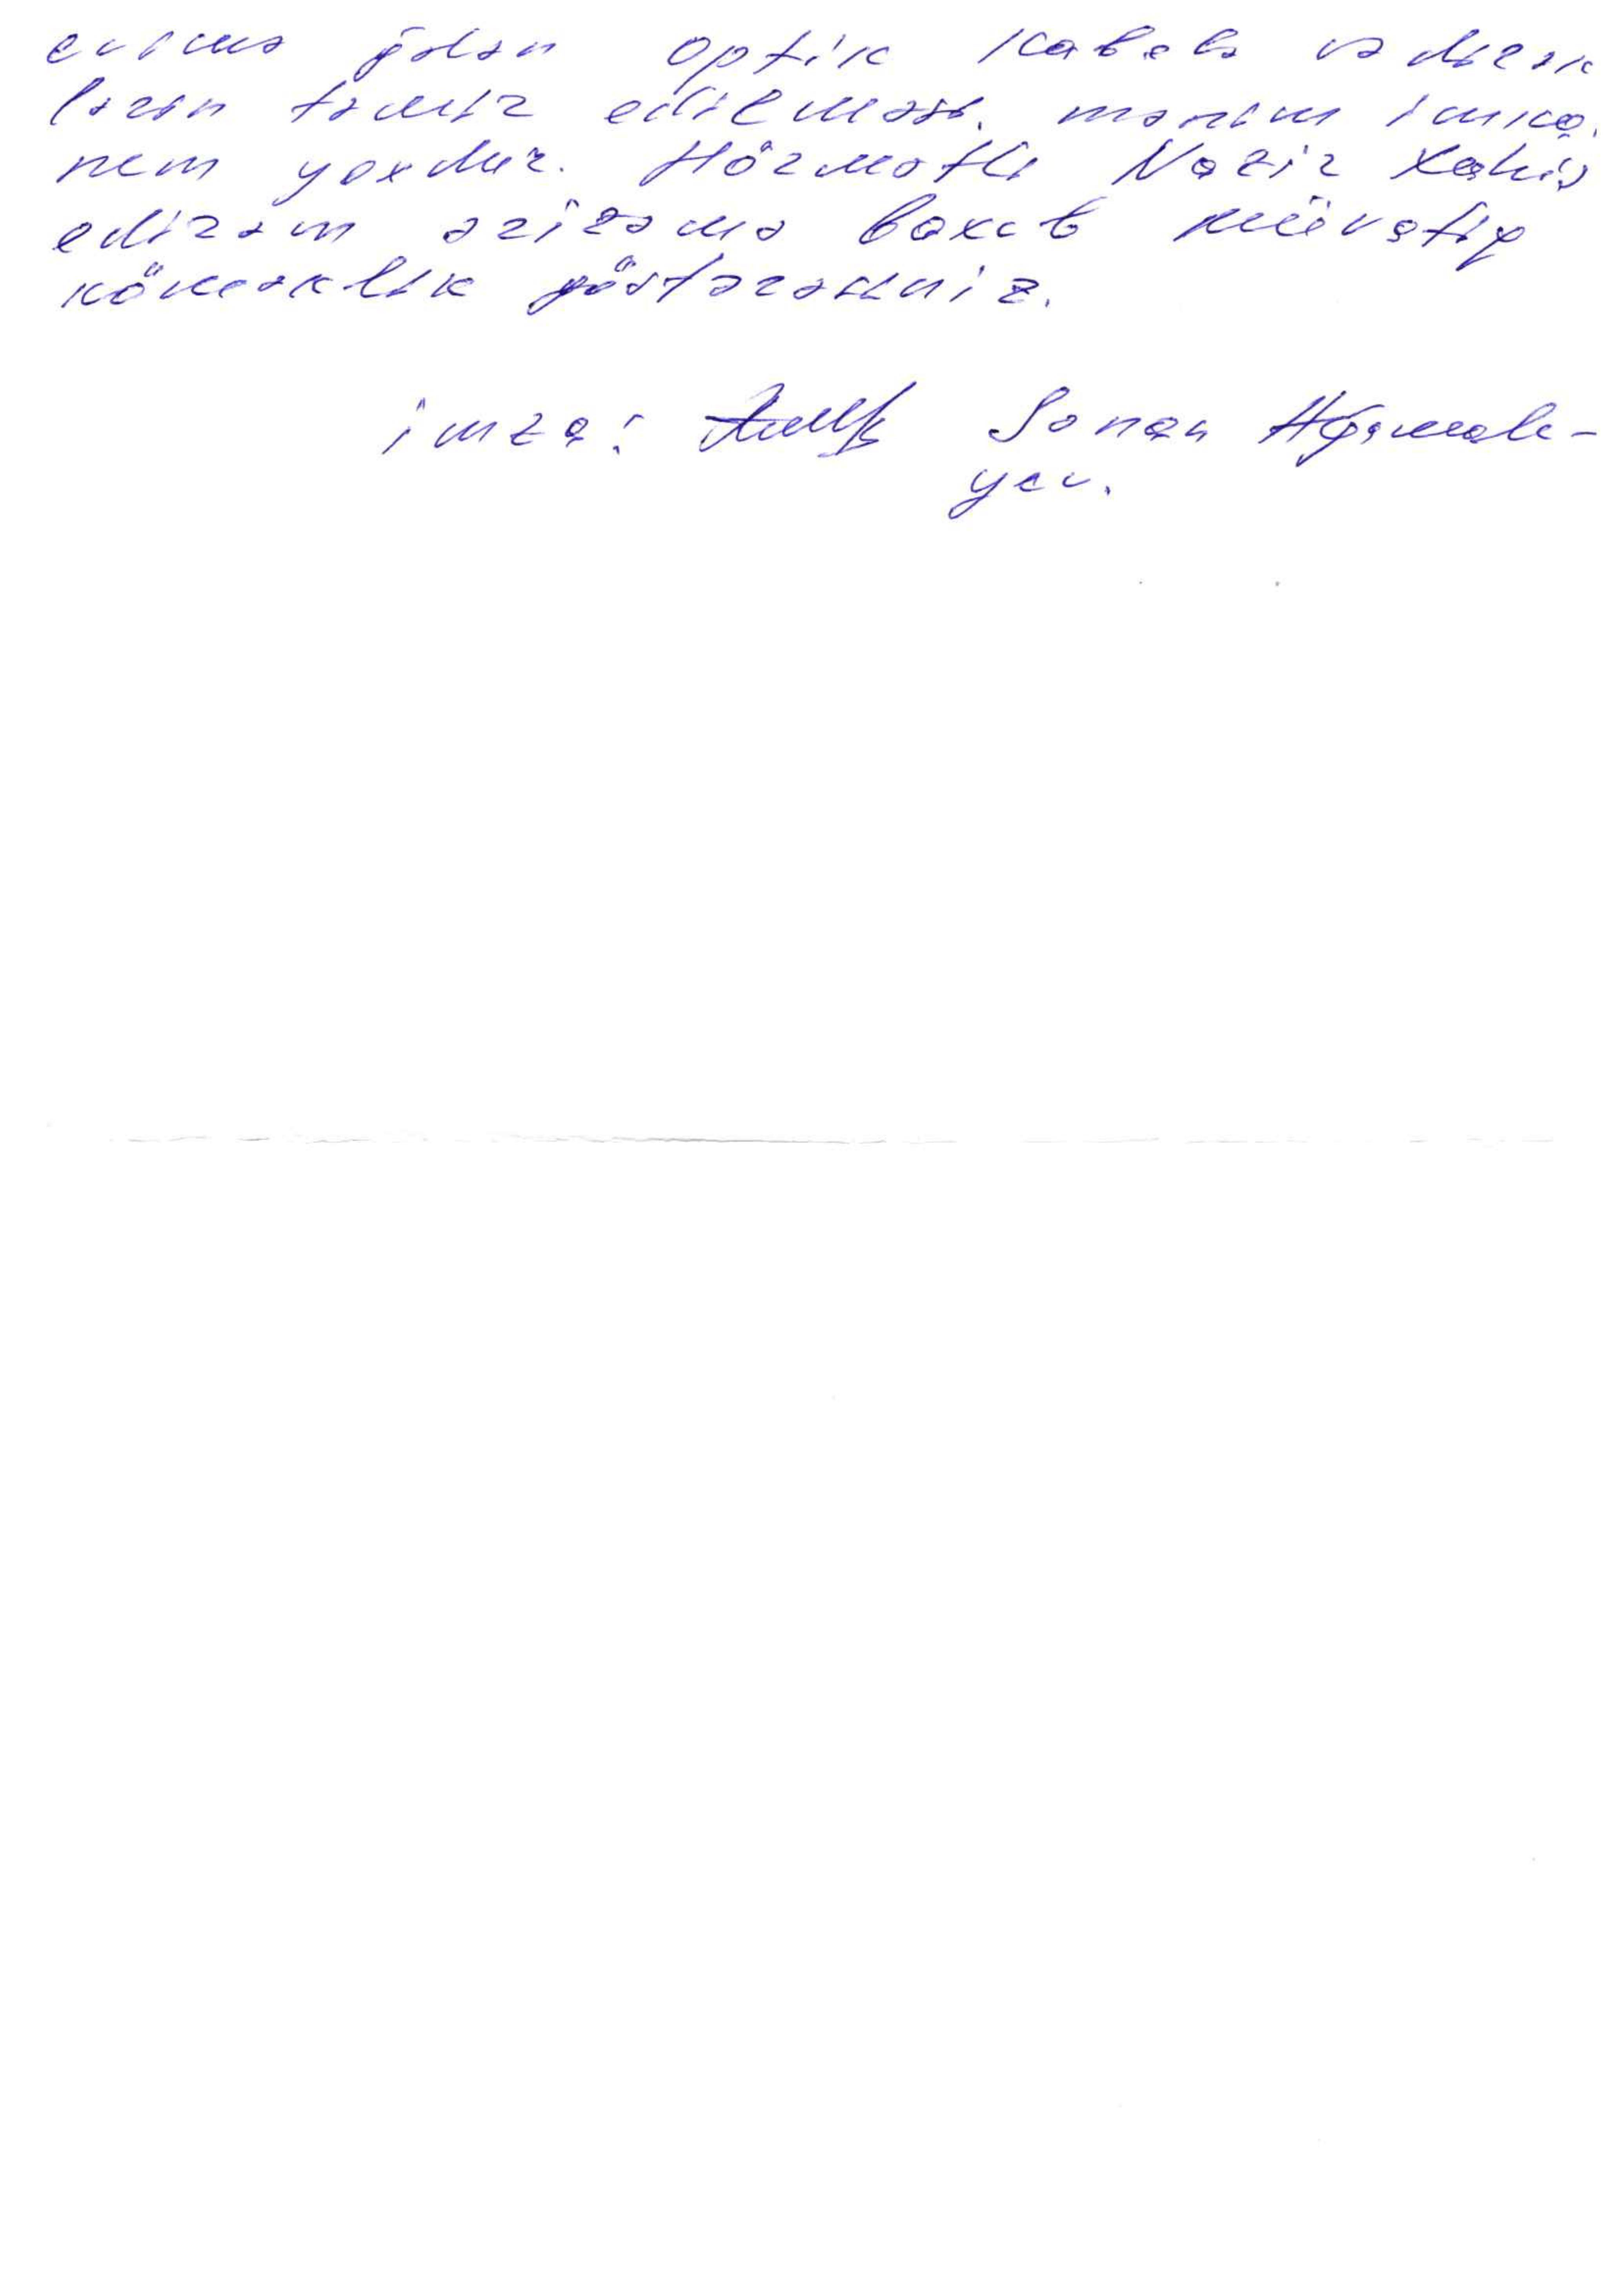 evimə gələn optik kabelə və dirək
lərin təmir edilməsi. mənim imka
nım yoxdur. Hörmətli Nazir Xahiş
edirəm ərizəmə baxıb müvafiq
köməklik göstərəsiniz.
imza: Sənan
yev.